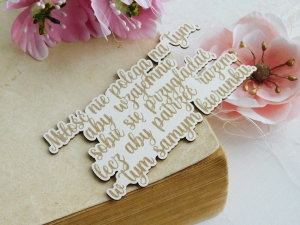 Miłość nie polega na tym,
aby wzajemnie
sobie się przyglądać
lecz aby patrzeć razem
w tym samym kierunku